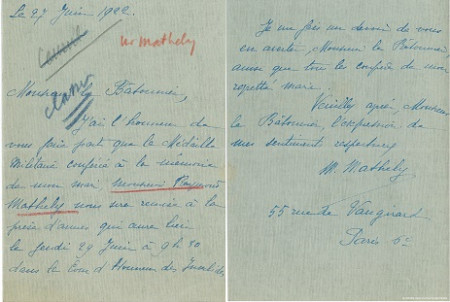 Le 27 Juin 1922.
Mr Mathely
Monsieur le Batonnier,
J'ai l'honneur de
vous faire part que la Médaille
Militaire conférée à la mémoire
de mon mari, Monsieur
Mathely nous sera remise à la
prise d'armes qui aura lieu
le Jeudi 29 Juin à 9h 30
dans la Cour d'Honneur des Invalides
Je me fais un devoir de vous
en aviser, Monsieur le Bâtonnier,
ainsi que tous les confrères de mon
regretté mari.
Veuillez agréer, Monsieur
le Bâtonnier, l'expression de
mes sentiments respectueux
M. Mathely
55 rue de Vaugirard
Paris 6e